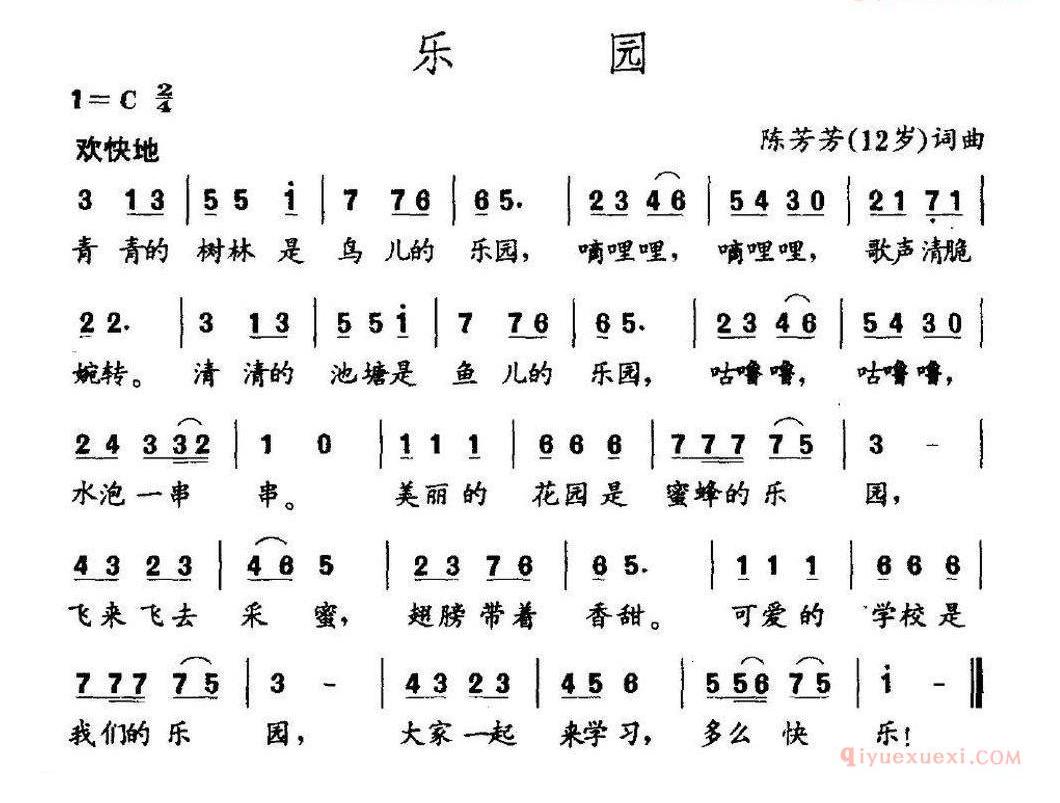 乐 园
1=C 2/4
陈芳芳(12岁)词曲
欢快地
3 13 | 55 i | 7 76 | 65. | 23 46 | 54 30 | 21 71 |
青 青的 树林 是 鸟 儿的 乐园, 嘀哩哩, 嘀哩哩, 歌声清脆
22. | 3 13 | 55i | 7 76 | 65. | 23 46 | 54 30 |
婉转。 清 清的 池塘是 鱼 儿的 乐园, 咕噜噜, 咕噜噜,
24 332 | 1 0 | 11 1 | 66 6 | 777 75 | 3 - |
水泡一串 串。 美丽的 花园是 蜜蜂的乐 园,
43 23 | 46 5 | 23 76 | 65. | 11 1 | 66 6 |
飞来飞去 采 蜜, 翅膀带着 香甜。 可爱的 学校是
777 75 | 3 - | 43 23 | 45 6 | 556 75 | i - ‖
我们的乐 园, 大家一起 来学习, 多么 快 乐!
qiyuexuexi.COM